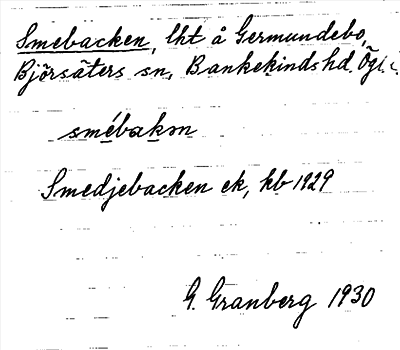 Smebacken, lht å Germundebo,
Björsäters sn, Bankekinds hd. Ögl.
smébakən
Smedjebacken ek, kb 1929
G. Granberg 1930